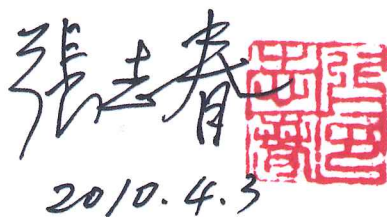 張志春
2010.4.3